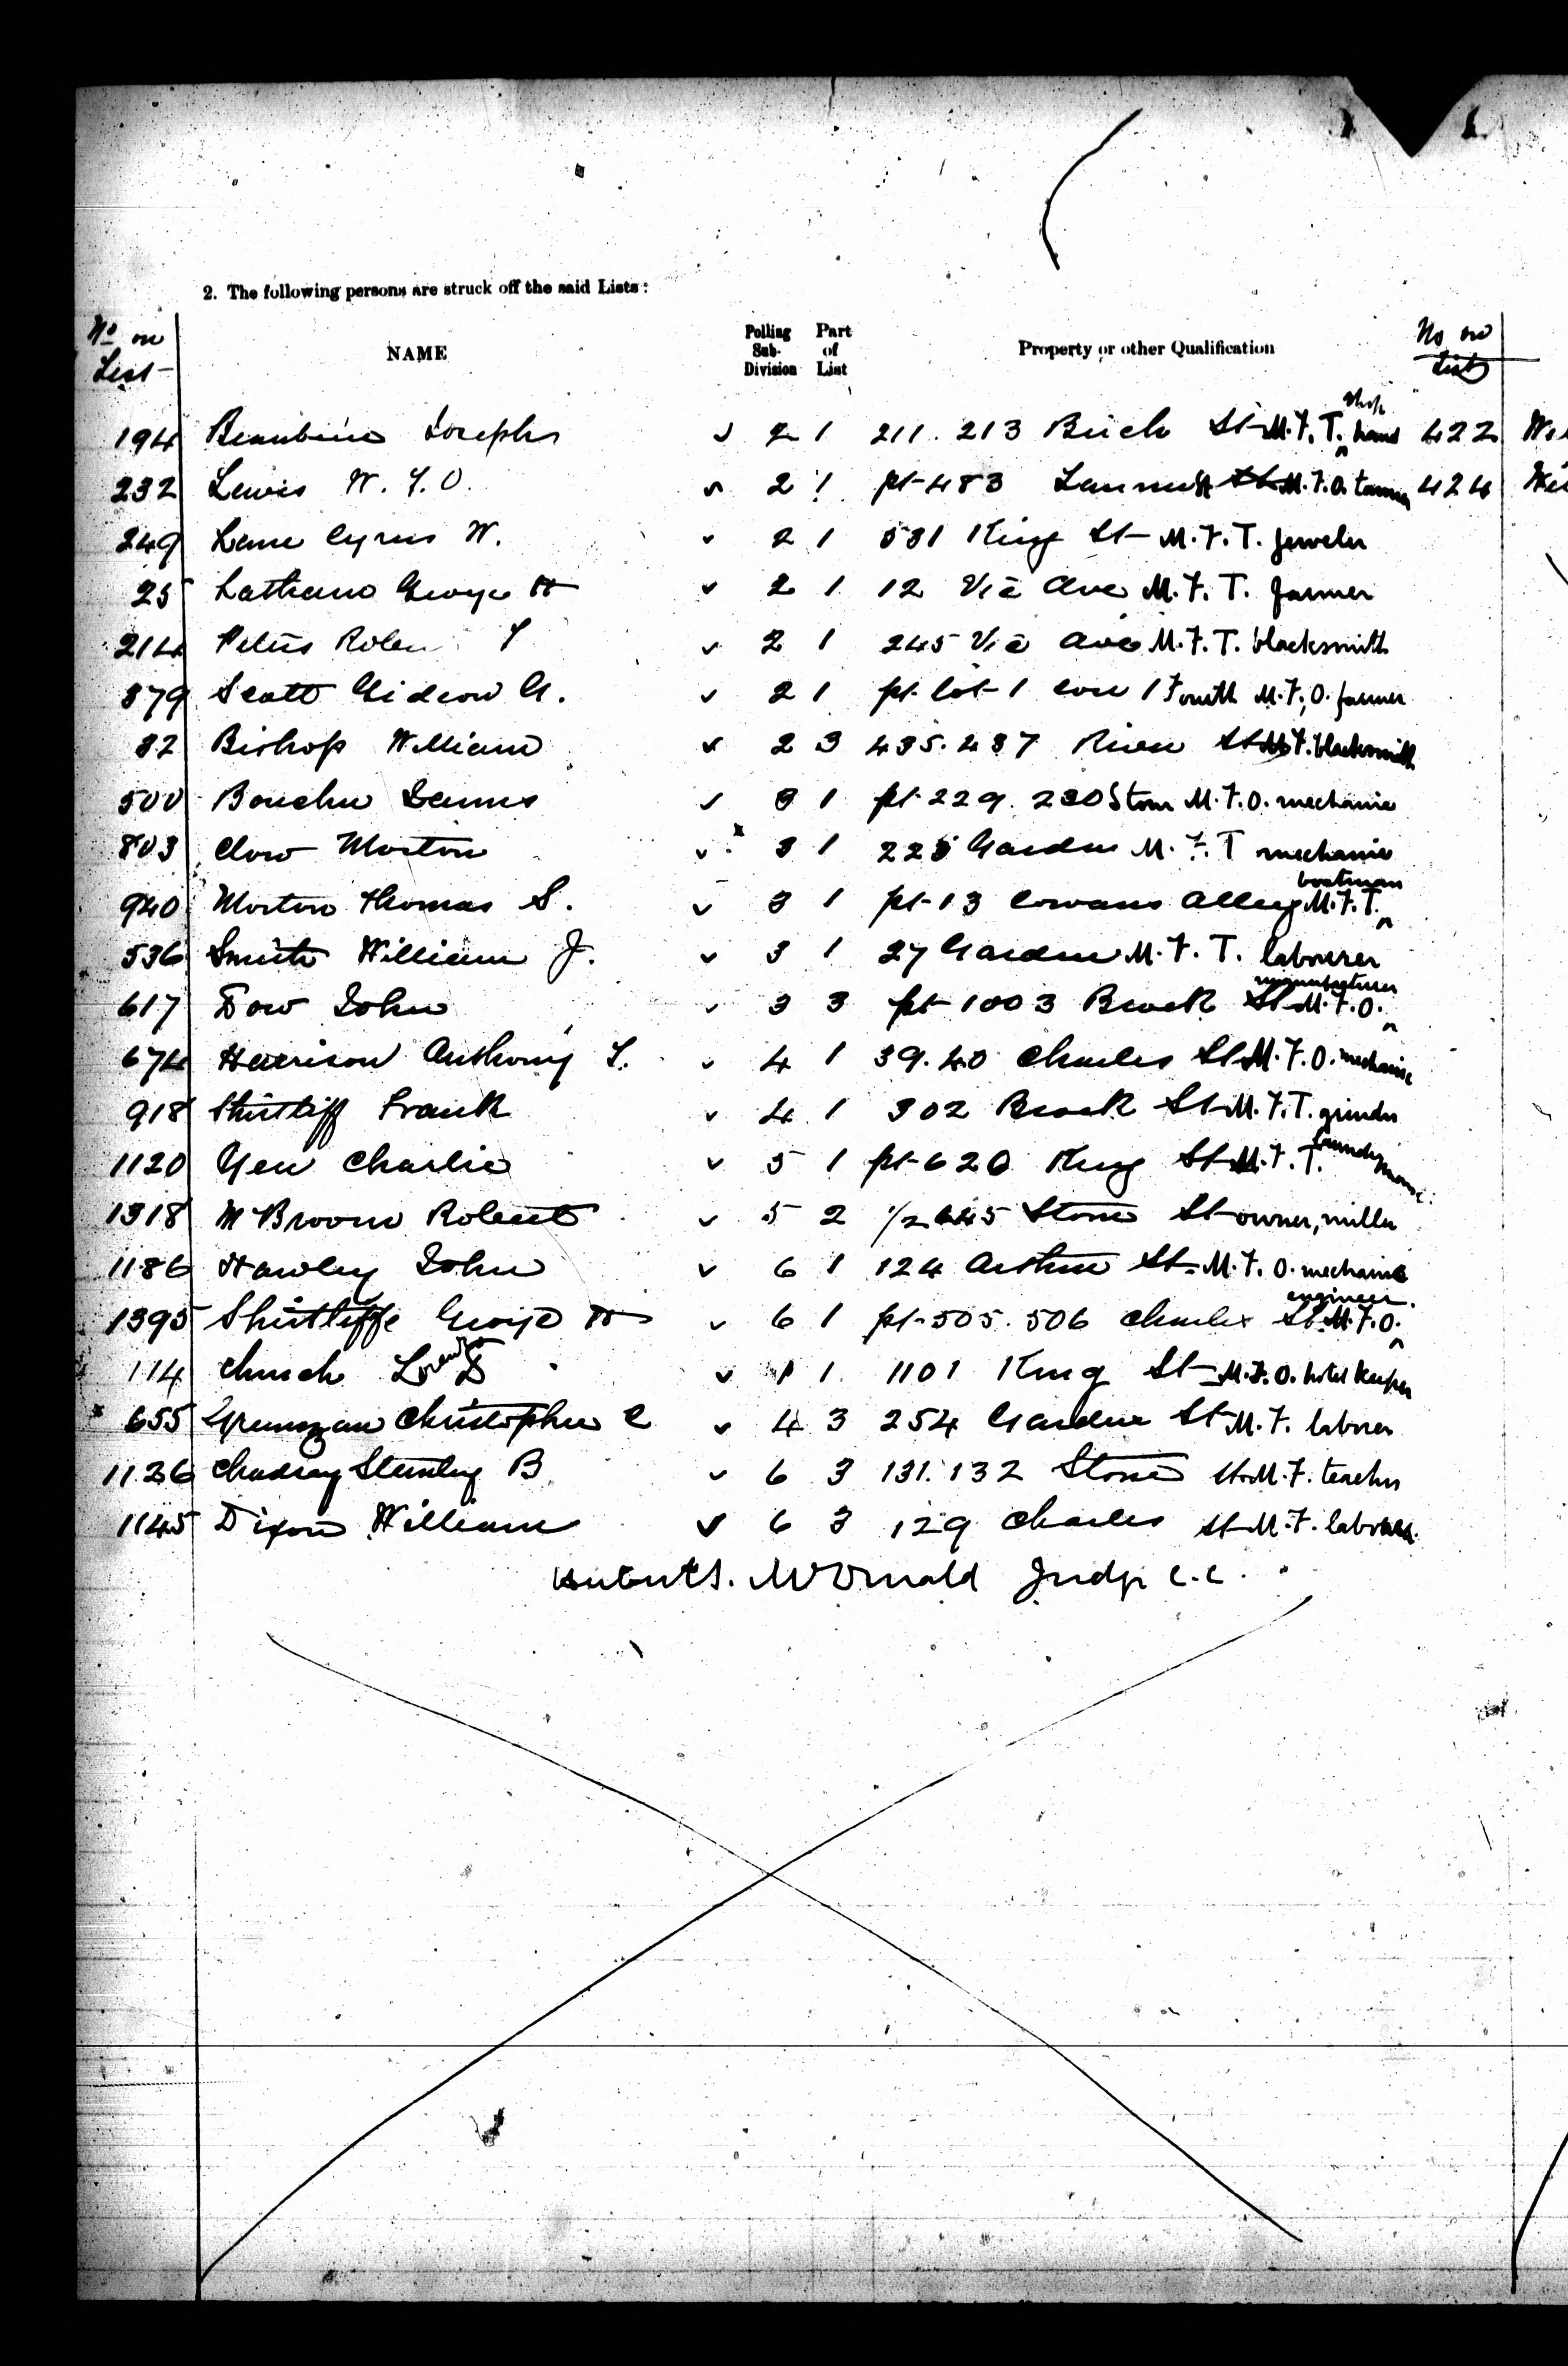 2. The following persons are struck off the said Lists:
No on List NAME Polling Sub-Division Part of List Property or other Qualification No on List
194 Joseph 2 1 211. 213 St M.F.T. shop hand 422
232 Lewis W. 2 1 pt 483 M.F.O. tanner 424
249 Lane Cyrus W. 2 1 531 King St M.F.T. jeweler
25 George H 2 1 12 Vic Ave M.F.T. farmer
214 2 1 245 Vic Ave M.F.T. blacksmith
379 Scott Gideon A. 2 1 pt lot 1 con 1 South M.F.O. farmer
32 Bishop William 2 3 435. 437 River St M.F. blacksmith
500 James 3 1 pt 229. 230 Stone M.F.O. mechanic
803 Clow Morton 3 1 Garden M.F.T mechanic
940 Morton Thomas S. 3 1 pt 13 Cowans Alley M.F.T. boatman
536 Smith William J. 3 1 27 Garden M.F.T. labourer
617 Dow John 3 3 pt 1003 Brock St M.F.O. manufacturer
674 Harrison Anthony 4 1 39. 40 Charles St M.F.O. mechanic
918 Shirtliff Frank 4 1 302 Brock St M.F.T. grinder
1120 Yen Charlie 5 1 pt 620 King St M.F.T. laundryman
1318 McBroom Robert 5 2 1/2 645 Stone St owner, miller
1186 Hawley John 6 1 124 Arthur St. M.F.O. mechanic
1395 Shirtliffe George H 6 1 pt 505. 506 Charles St. M.F.O. engineer.
114 Church Lorenzo D 1 1 1101 King St M.F.O. hotel keeper
655 Christopher C 4 3 254 Garden St M.F. laborer
1126 Stanley B 6 3 131. 132 Stone St M.F. teacher
1145 Dixon William 6 3 129 Charles St M.F. laborer
Herbert S. McDonald Judge C.C.